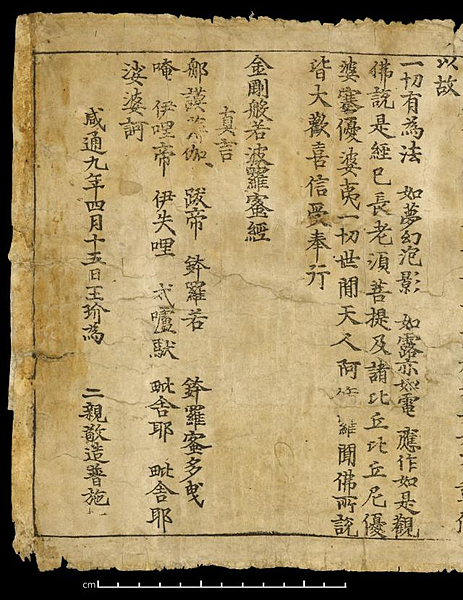 以故
一切有為法 如夢幻泡影 如露亦如電 應作如是觀
佛說是經已長老須菩提及諸比丘比丘尼優
婆塞優婆夷一切世間天人阿脩羅聞佛所說
皆大歡喜信受奉行
金剛般若波羅蜜經
真言
那謨薄伽 跋帝 鉢羅若 鉢羅蜜多曳
唵 伊哩帝 伊失哩 戍嚧馱 毗舍耶 毗舍耶
娑婆訶
咸通九年四月十五日王玠為 二親敬造普施
cm